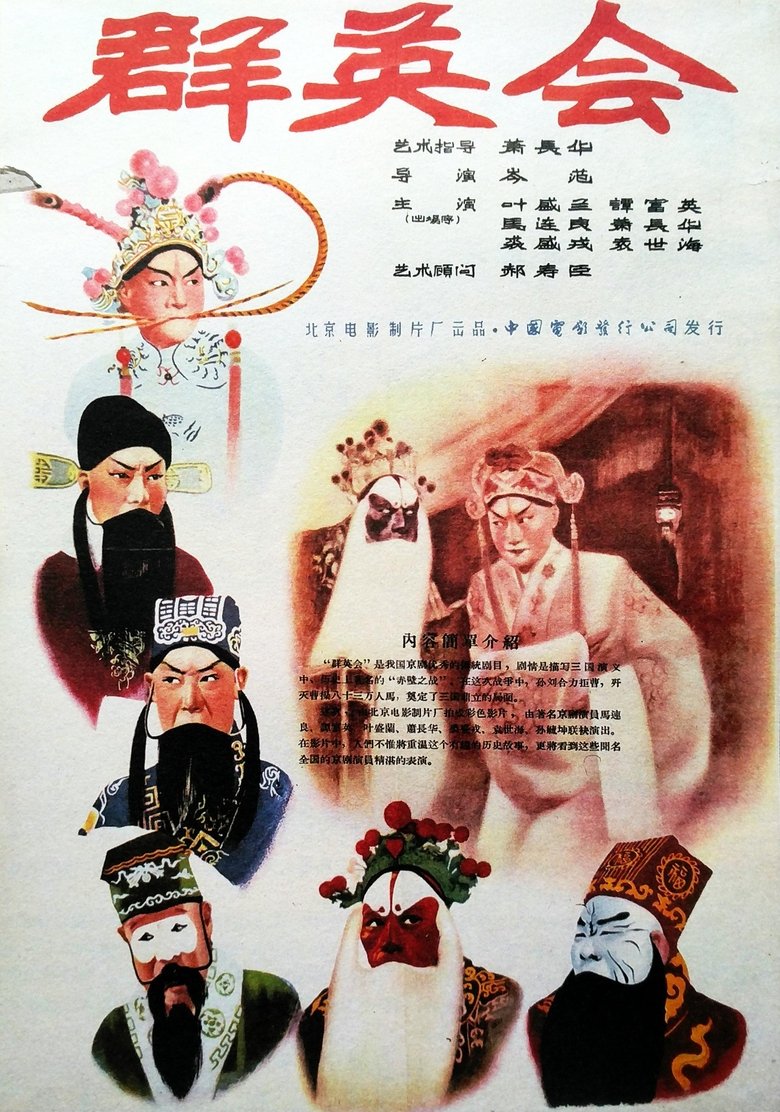 群英会
艺术指导 萧長华
导演 岑范
主演 叶盛兰 譚富英
(出場序) 馬连良 萧長华
裘盛戎 袁世海
艺术顾问 郝寿臣
北京电影制片厂出品·中國電影發行公司发行
內容簡單介紹
“群英会”是我国京剧优秀的傳統剧目，剧情是描写三国演义
中、历史上著名的“赤壁之战”。在这次战爭中，孙刘合力拒曹，歼
灭曹操八十三万人馬，奠定了三国鼎立的局面。
由北京电影制片厂拍成彩色影片，由著名京剧演員馬連
良、譚富英、叶盛蘭、蕭長华、裘盛戎、袁世海、孙毓坤联袂演出。
在影片中，人們不惟將重温这个有趣的历史故事，更將看到这些聞名
全国的京剧演員精湛的表演。